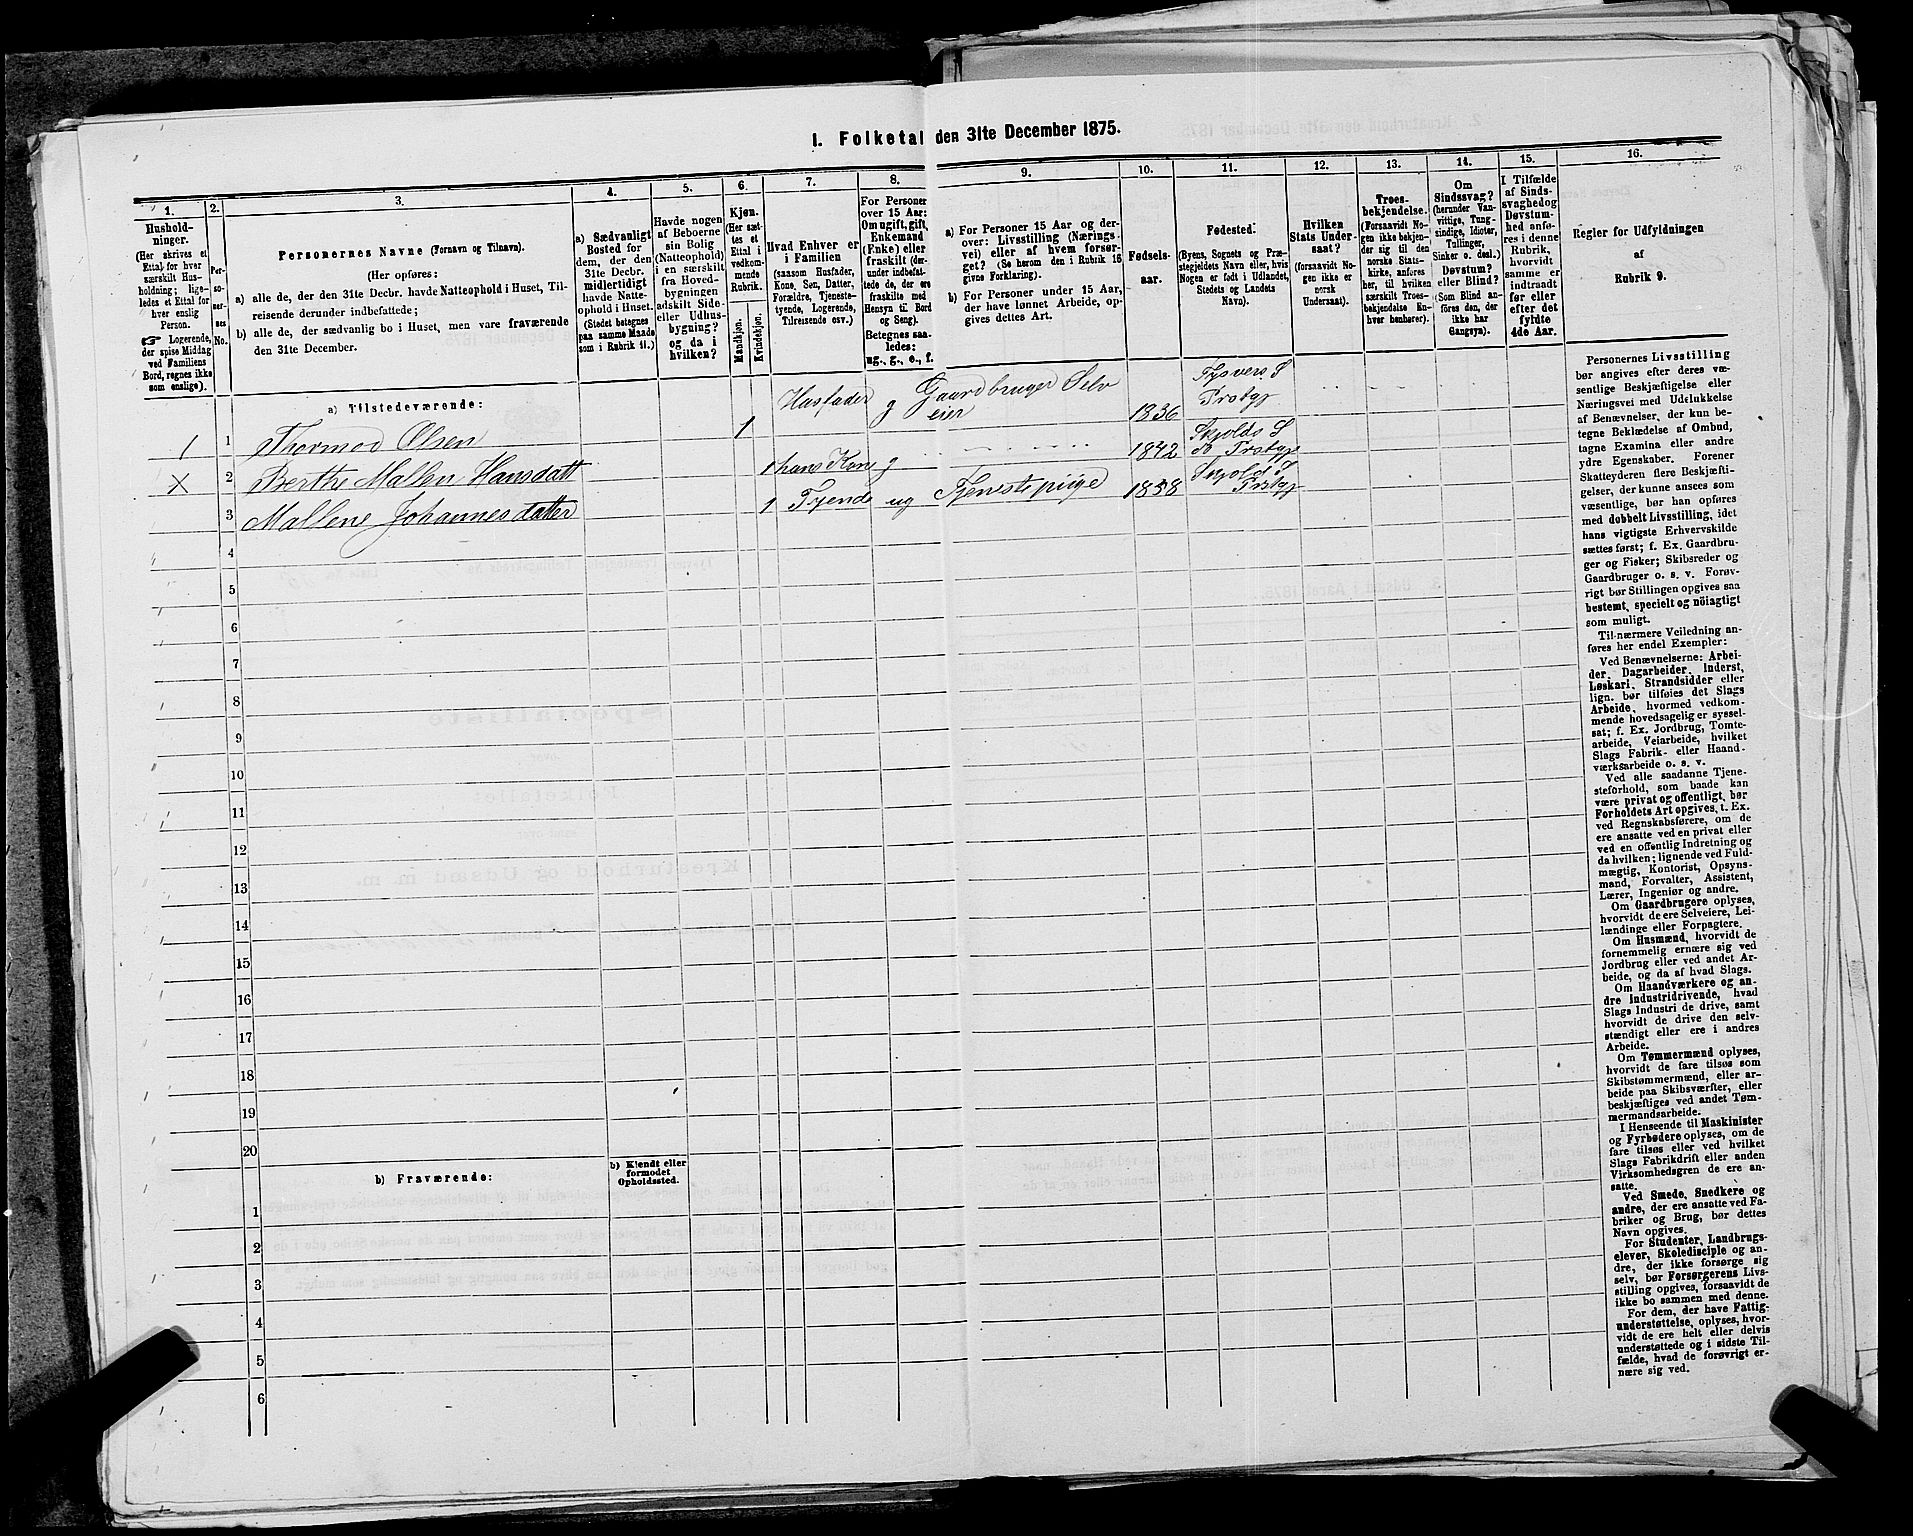 1. Folketal den 31te December 1875.
1.
Hushold-
ninger.
(Her skrives et
Ettal for hver
særskilt Hus-
holdning; lige-
ledes et Ettal for
hver enslig
Person.
☞ Logerende,
der spise Middag
ved Familiens
Bord, regnes ikke
som enslige).
2.
Per-
so-
ner-
nes
No.
3.
Personernes Navne (Fornavn og Tilnavn).
(Her opføres:
a) alle de, der den 31te Decbr. havde Natteophold i Huset, Til-
reisende derunder indbefattede;
b) alle de, der sædvanlig bo i Huset, men vare fraværende
den 31te December.
4.
a) Sædvanligt
Bosted for
dem, der den
31te Decbr.
midlertidigt
havde Natte-
ophold i Huset.
(Stedet betegnes
paa samme Maade
som i Rubrik 11.)
5.
Havde nogen
af Beboerne
sin Bolig
(Natteophold)
i en særskilt
fra Hoved-
bygningen
adskilt Side-
eller Udhus-
bygning?
og da i
hvilken?
6.
Kjøn.
(Her sæt-
tes et
Ettal i
vedkom-
mende
Rubrik.
Mandkjøn.
Kvindekjøn.
7.
Hvad Enhver er
i Familien
(saasom Husfader,
Kone, Søn, Datter,
Forældre, Tjeneste-
tyende, Logerende,
Tilreisende osv.)
8.
For Personer
over 15 Aar:
Om ugift, gift,
Enkemand
(Enke) eller
fraskilt (der-
under indbefat-
tede de, der ere
fraskilte med
Hensyn til Bord
og Seng).
Betegnes saa-
ledes:
ug., g., e., f.
9.
a) For Personer 15 Aar og der-
over: Livsstilling (Nærings-
vei) eller af hvem forsør-
get? (Se herom den i Rubrik 16
givne Forklaring).
b) For Personer under 15 Aar,
der have lønnet Arbeide, op-
gives dettes Art.
10.
Fødsels-
aar.
11.
Fødested.
(Byens, Sognets og Præ-
stegjeldets Navn eller, hvis
Nogen er født i Udlandet,
Stedets og Landets
Navn).
12.
Hvilken
Stats Under-
saat?
(forsaavidt No-
gen ikke er
norsk
Undersaat).
13.
Troes-
bekjendelse.
(Forsaavidt No-
gen ikke bekjen-
der sig til den
norske Stats-
kirke, anføres
her, til hvilken
særskilt Troes-
bekjendelse En-
hver henhører).
14.
Om
Sindssvag?
(herunder Van-
vittige, Tung-
sindige, Idioter,
Tullinger,
Sinker o. desl.)
Døvstum?
eller Blind?
(Som Blind an-
føres den, der
ikke har
Gangsyn).
15.
I Tilfælde
af Sinds-
svaghed og
Døvstum-
hed anfø-
res i denne
Rubrik,
hvorvidt
samme er
indtraadt
før eller
efter det
fyldte
4de Aar.
16.
Regler for Udfyldningen
af
Rubrik 9.
a) Tilstedeværende:
1 1 Thormod Olsen 1 Husfader g Gaardbruger Selv
eier 1836 Tysvers S
Prstgp
X 2 Berthe Mallen Hansdatt 1 hans Kone g 1842 Skjolds S
Prstgp
3 Mallene Johannesdatter 1 Tjende ug Tjenestepiige 1858 Skjold S
Prstgp
4
5
6
7
8
9
10
11
12
13
14
15
16
17
18
19
20
b) Fraværende:
b) Kjendt eller
formodet
Opholdssted.
1
2
3
4
5
6
Personernes Livsstilling
bør angives efter deres væ-
sentlige Beskjæftigelse eller
Næringsvei med Udelukkelse
af Benævnelser, der kun be-
tegne Beklædelse af Ombud,
tagne Examina eller andre
ydre Egenskaber. Forener
Skatteyderen flere Beskjæfti-
gelser, der kunne ansees som
væsentlige, bør han opføres
med dobbelt Livsstilling, idet
hans vigtigste Erhvervskilde
sættes først; f. Ex. Gaardbru-
ger og Fisker; Skibsreder og
Gaardbruger o. s. v. Forøv-
rigt bør Stillingen opgives saa
bestemt, specielt og nöiagtigt
som muligt.
Til nærmere Veiledning an-
føres her endel Exempler:
Ved Benævnelserne: Arbei-
der, Dagarbeider, Inderst,
Løskari, Strandsidder eller
lign. bør tilføies det Slags
Arbeide, hvormed vedkom-
mende hovedsagelig er syssel-
sat; f. Ex. Jordbrug, Tomte-
arbeide, Veiarbeide, hvilket
Slags Fabrik- eller Haand-
værksarbeide o. s. v.
Ved alle saadanne Tjene-
steforhold, som baade kan
være privat og offentligt, bør
Forholdets Art opgives, t. Ex.
ved Regnskabsførere, om de
ere ansatte ved en privat eller
ved en offentlig Indretning og
da hvilken; lignende ved Fuld-
mægtig, Kontorist, Opsyns-
mand, Forvalter, Assistent,
Lærer, Ingeniør og andre.
Om Gaardbrugere oplyses,
hvorvidt de ere Selveiere, Lei-
lændinge eller Forpagtere.
Om Husmænd, hvorvidt de
fornemmelig ernære sig ved
Jordbrug eller ved andet Ar-
beide, og da af hvad Slags.
Om Haandværkere og an-
dre Industridrivende, hvad
Slags Industri de drive, samt
hvorvidt de drive den selv-
stændigt eller ere i andres
Arbeide.
Om Tømmermænd oplyses,
hvorvidt de fare tilsøs som
Skibstømmermænd, eller ar-
beide paa Skibsværfter, eller
beskjæftiges ved andet Tøm-
mermandsarbeide.
I Henseende til Maskinister
og Fyrbødere oplyses, om de
fare tilsøs eller ved hvilket
Slags Fabrikdrift eller anden
Virksomhedsgren de ere an-
satte.
Ved Smede, Snedkere og
andre, der ere ansatte ved Fa-
briker og Brug, bør dettes
Navn opgives.
For Studenter, Landbrugs-
elever, Skoledisciple og an-
dre, der ikke forsørge sig
selv, bør Forsørgerens Livs-
stilling opgives, forsaavidt de
ikke bo sammen med denne.
For dem, der have Fattig-
understøttelse, oplyses, hvor-
vidt de ere helt eller delvis
understøttede og i sidste Til-
fælde, hvad de forøvrigt er-
nære sig ved.